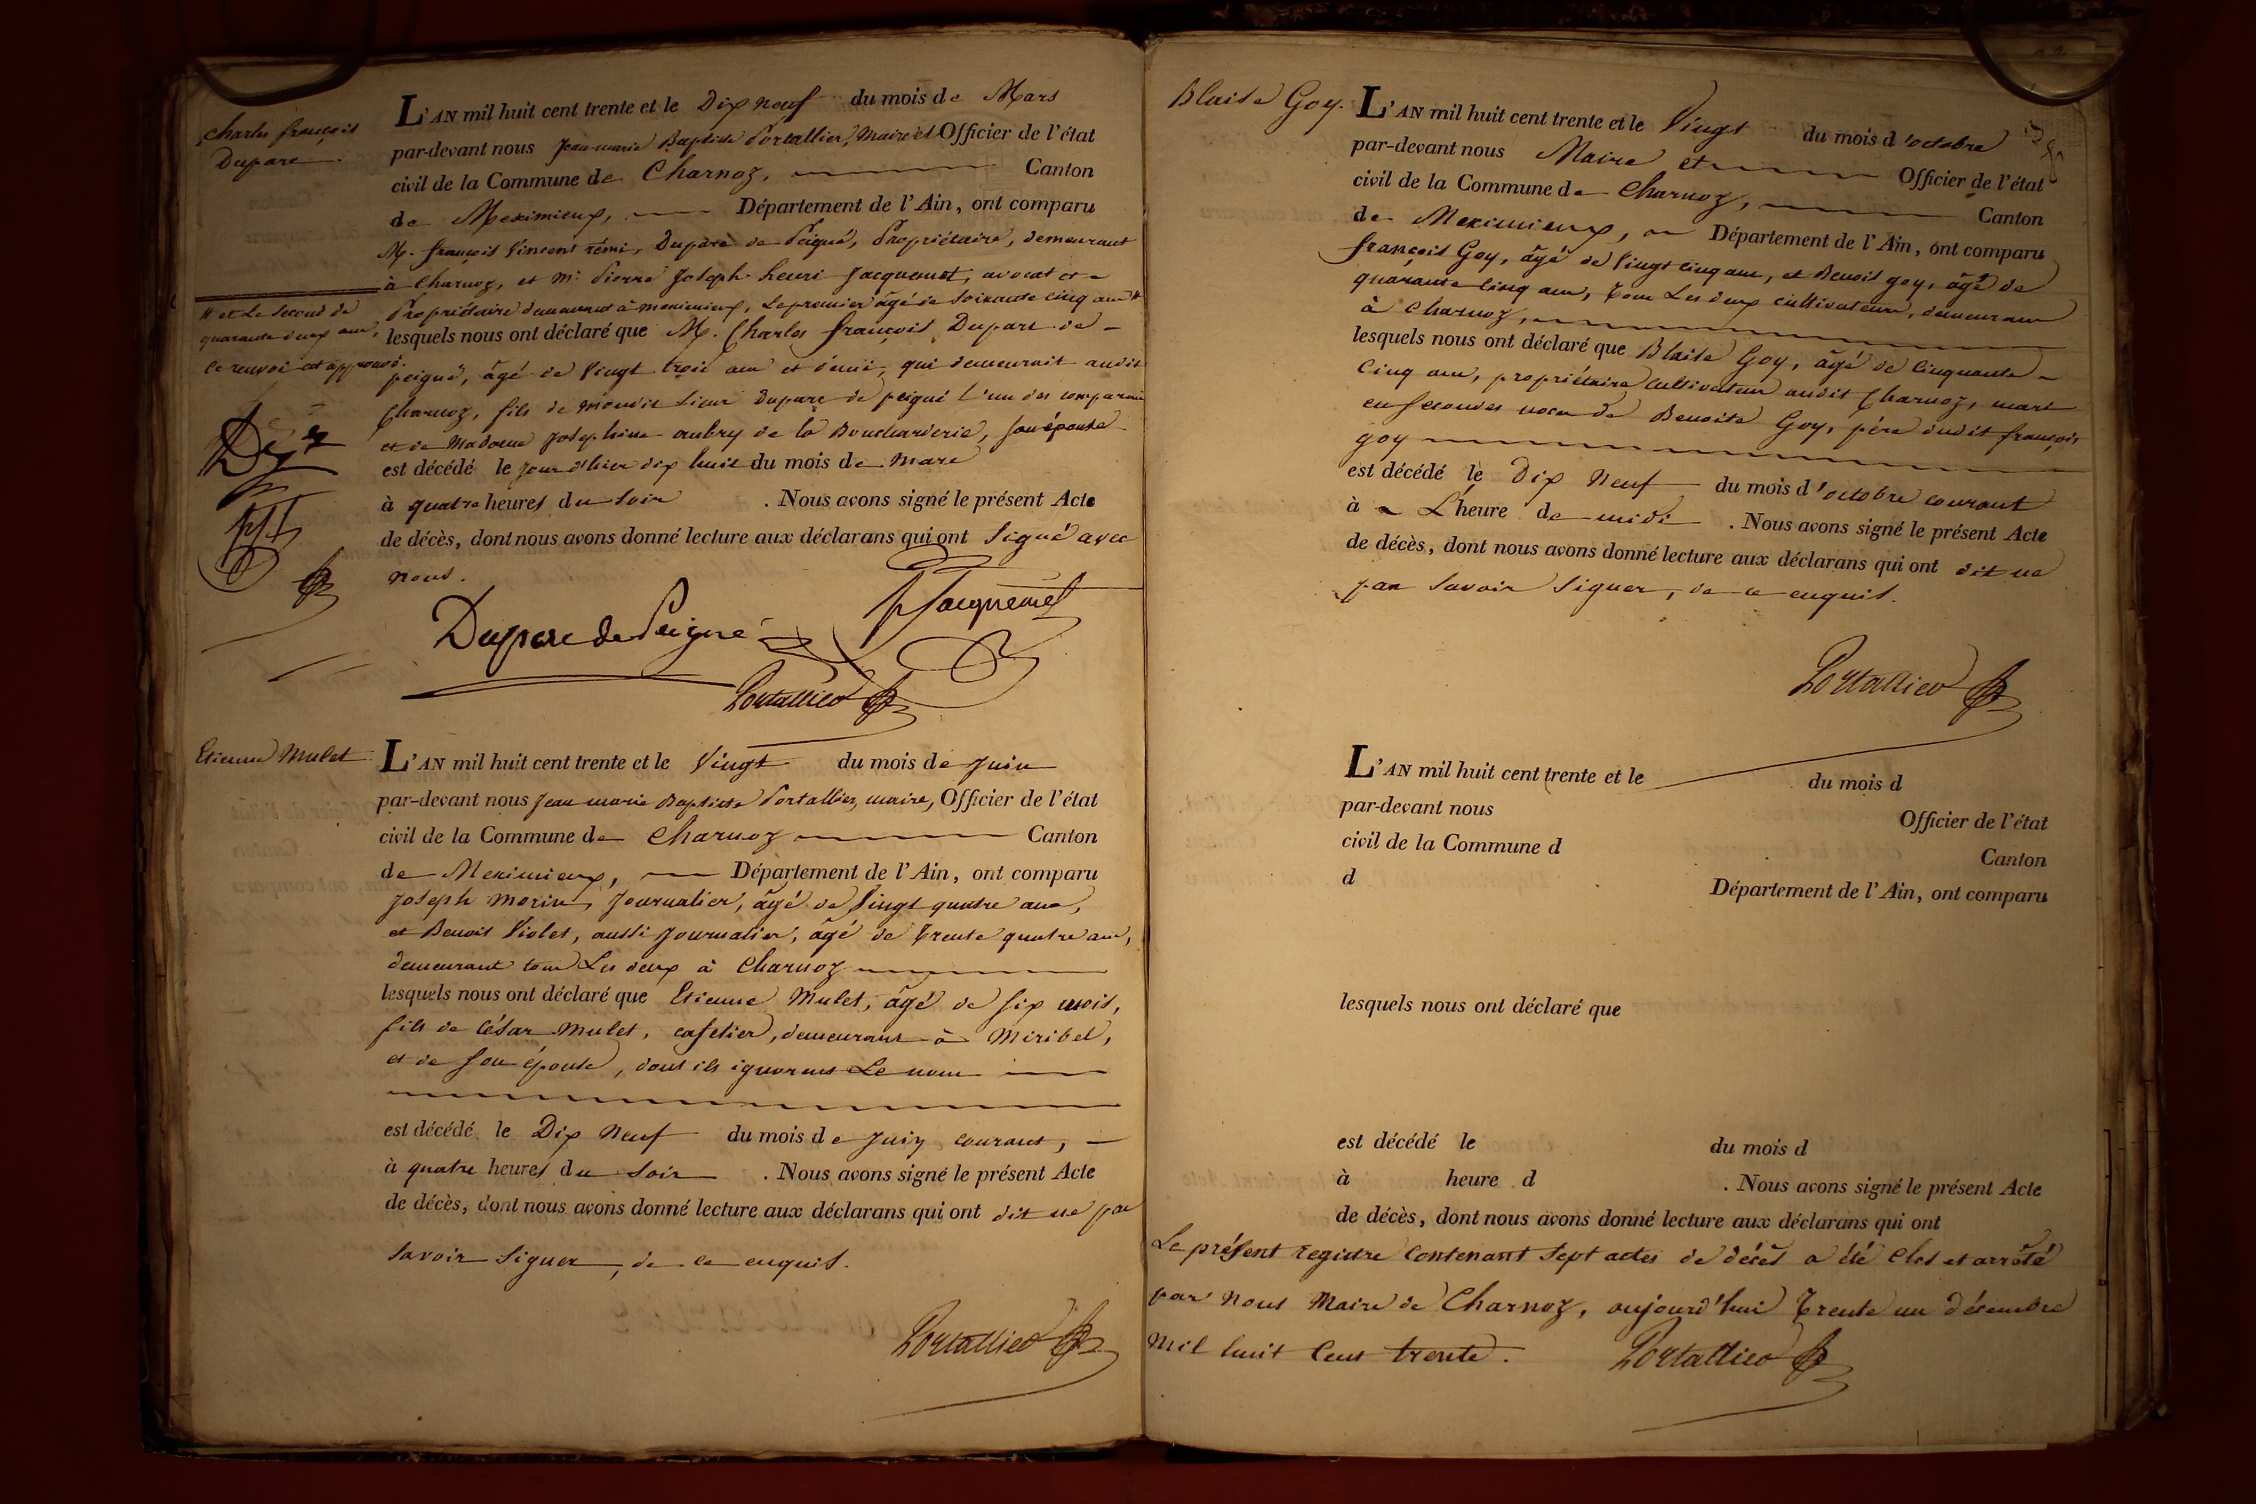 Charles françois
Duparc
L'AN mil huit cent trente et le Dix neuf du mois de Mars
par-devant nous Jean marie Baptiste Portallier, Maire et Officier de l'état
civil de la Commune de Charnoz, Canton
de Meximieux, Département de l'Ain, ont comparu
M. françois Vincent rémi, Duparc de Peigné, Propriétaire, demeurant
à Charnoz, et Mr. Pierre Joseph henri Jacquemet, avocat et
Propriétaire demeurant à meximieux, Le premier âgé de Soixante cinq ans #
# et Le Second de
quarante deux ans,
ce renvoi est approuvé.
lesquels nous ont déclaré que M. Charles françois Duparc de
peigné, âgé de Vingt trois ans et demi, qui demeurait audit
Charnoz, fils de mondit Sieur Duparc de peigné l'un des comparans
et de Madame Joséphine aubry de la Boucharderie, Son épouse
est décédé le jour d'hier dix huit du mois de Mars
à quatre heures du Soir . Nous avons signé le présent Acte
de décès, dont nous avons donné lecture aux déclarans qui ont Signé avec
nous.
Duparc de Peigné
Jacquemet
Portallier
Etienne Mulet
L'AN mil huit cent trente et le Vingt du mois de Juin
par-devant nous Jean marie Baptiste Portallier, maire, Officier de l'état
civil de la Commune de Charnoz Canton
de Meximieux, Département de l'Ain, ont comparu
Joseph Morin, Journalier, âgé de Vingt quatre ans,
et Benoit Violet, aussi Journalier, âgé de Trente quatre ans,
demeurant tous Les deux à Charnoz
lesquels nous ont déclaré que Etienne Mulet, âgé de Six mois,
fils de César Mulet, cafetier, demeurant à Miribel,
et de Son épouse, dont ils ignorent Le nom
est décédé le Dix Neuf du mois de Juin courant,
à quatre heures du Soir . Nous avons signé le présent Acte
de décès, dont nous avons donné lecture aux déclarans qui ont dit ne pas
Savoir Signer, de ce enquis.
Portallier
Blaise Goy.
L'AN mil huit cent trente et le Vingt du mois d'octobre
par-devant nous Maire et Officier de l'état
civil de la Commune de Charnoz, Canton
de Meximieux, Département de l'Ain, ont comparu
françois Goy, âgé de Vingt cinq ans, et Benoit goy, âgé de
quarante cinq ans, Tous Les deux cultivateurs, demeurans
à Charnoz,
lesquels nous ont déclaré que Blaise Goy, âgé de Cinquante
Cinq ans, propriétaire Cultivateur audit Charnoz, mari
en Secondes noces de Benoite Goy, père dudit françois
goy
est décédé le Dix Neuf du mois d'octobre courant
à L'heure de midi . Nous avons signé le présent Acte
de décès, dont nous avons donné lecture aux déclarans qui ont dit ne
pas Savoir Signer, de ce enquis.
Portallier
L'AN mil huit cent trente et le du mois d
par-devant nous Officier de l'état
civil de la Commune d Canton
d Département de l'Ain, ont comparu
lesquels nous ont déclaré que
est décédé le du mois d
à heure d . Nous avons signé le présent Acte
de décès, dont nous avons donné lecture aux déclarans qui ont
Le présent Registre Contenant Sept actes de décès a été Clos et arrêté
par Nous Maire de Charnoz, aujourd'hui Trente un décembre
Mil huit Cent trente.
Portallier